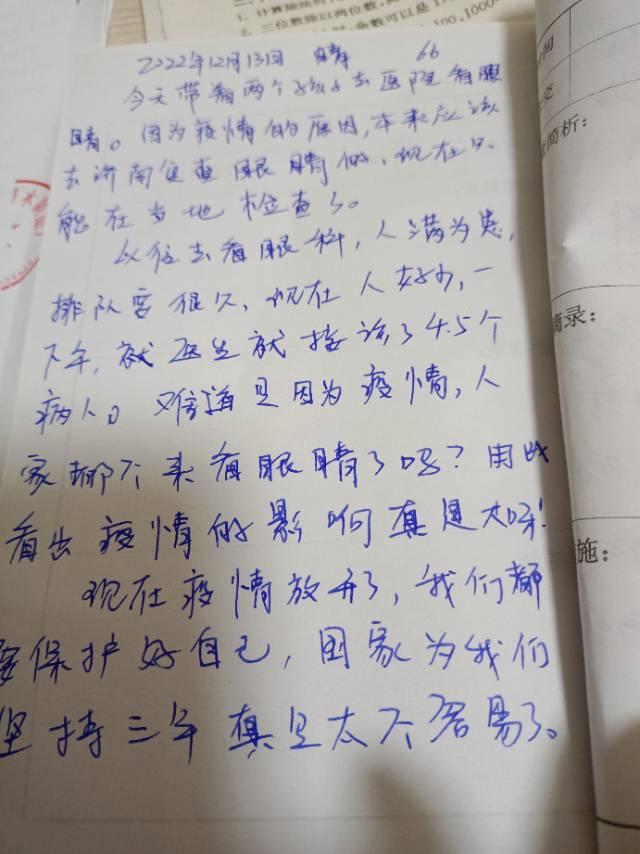 1. 计算除法时
2. 三位数除以两位数,
余数可以是
100,1000
2022年12月13日 晴 66
今天带着两个孩子去医院看眼
睛。因为疫情的原因,本来应该
去济南复查眼睛的,现在只
能在当地检查了。
以往去看眼科,人满为患,
排队要很久,现在人好少,一
下午,就医生就接诊了4.5个
病人。难道是因为疫情,人
家都不来看眼睛了吗?由此
看出疫情的影响真是大呀!
现在疫情放开了,我们都
要保护好自己,国家为我们
坚持三年真是太不容易了。
简析:
摘录:
施: